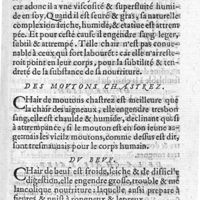 car adonc il a vne viscosité & superfluité humi-
de en soy. Quand il est ieune & gras, sa naturelle
complexion seiche, humide, & etaïue est attrem-
pée. Et pour ceste cause il engendre sang leger,
subtil & attrempé. Telle chair n'est pas conue-
nable à ceux qui sont fort laboura: car elle n'arreste-
roit point en leur corps, pour la subtilité & ten-
dreté de la substance de la nourriture.
DES MOVTONS CHASTREZ.
CHair de moutons chastrez est meilleure que
la chair des aigneaux, elle engendre tresbon
sang, elle est chaulde & humide, declinant quasi
à attrempance, si le mouton est d'vn an ou non
germais les vieilz moutons, comme dessus est dit,
sont tresmauuais pour le corps humain.
DV BEVF.
CHair de beuf est froide, seiche & de difficile
digestion, elle engendre grosse, trouble & me-
lancolique nourriture: laquelle aussi prepare à
fieures & nuist à rongneux & lepreux.